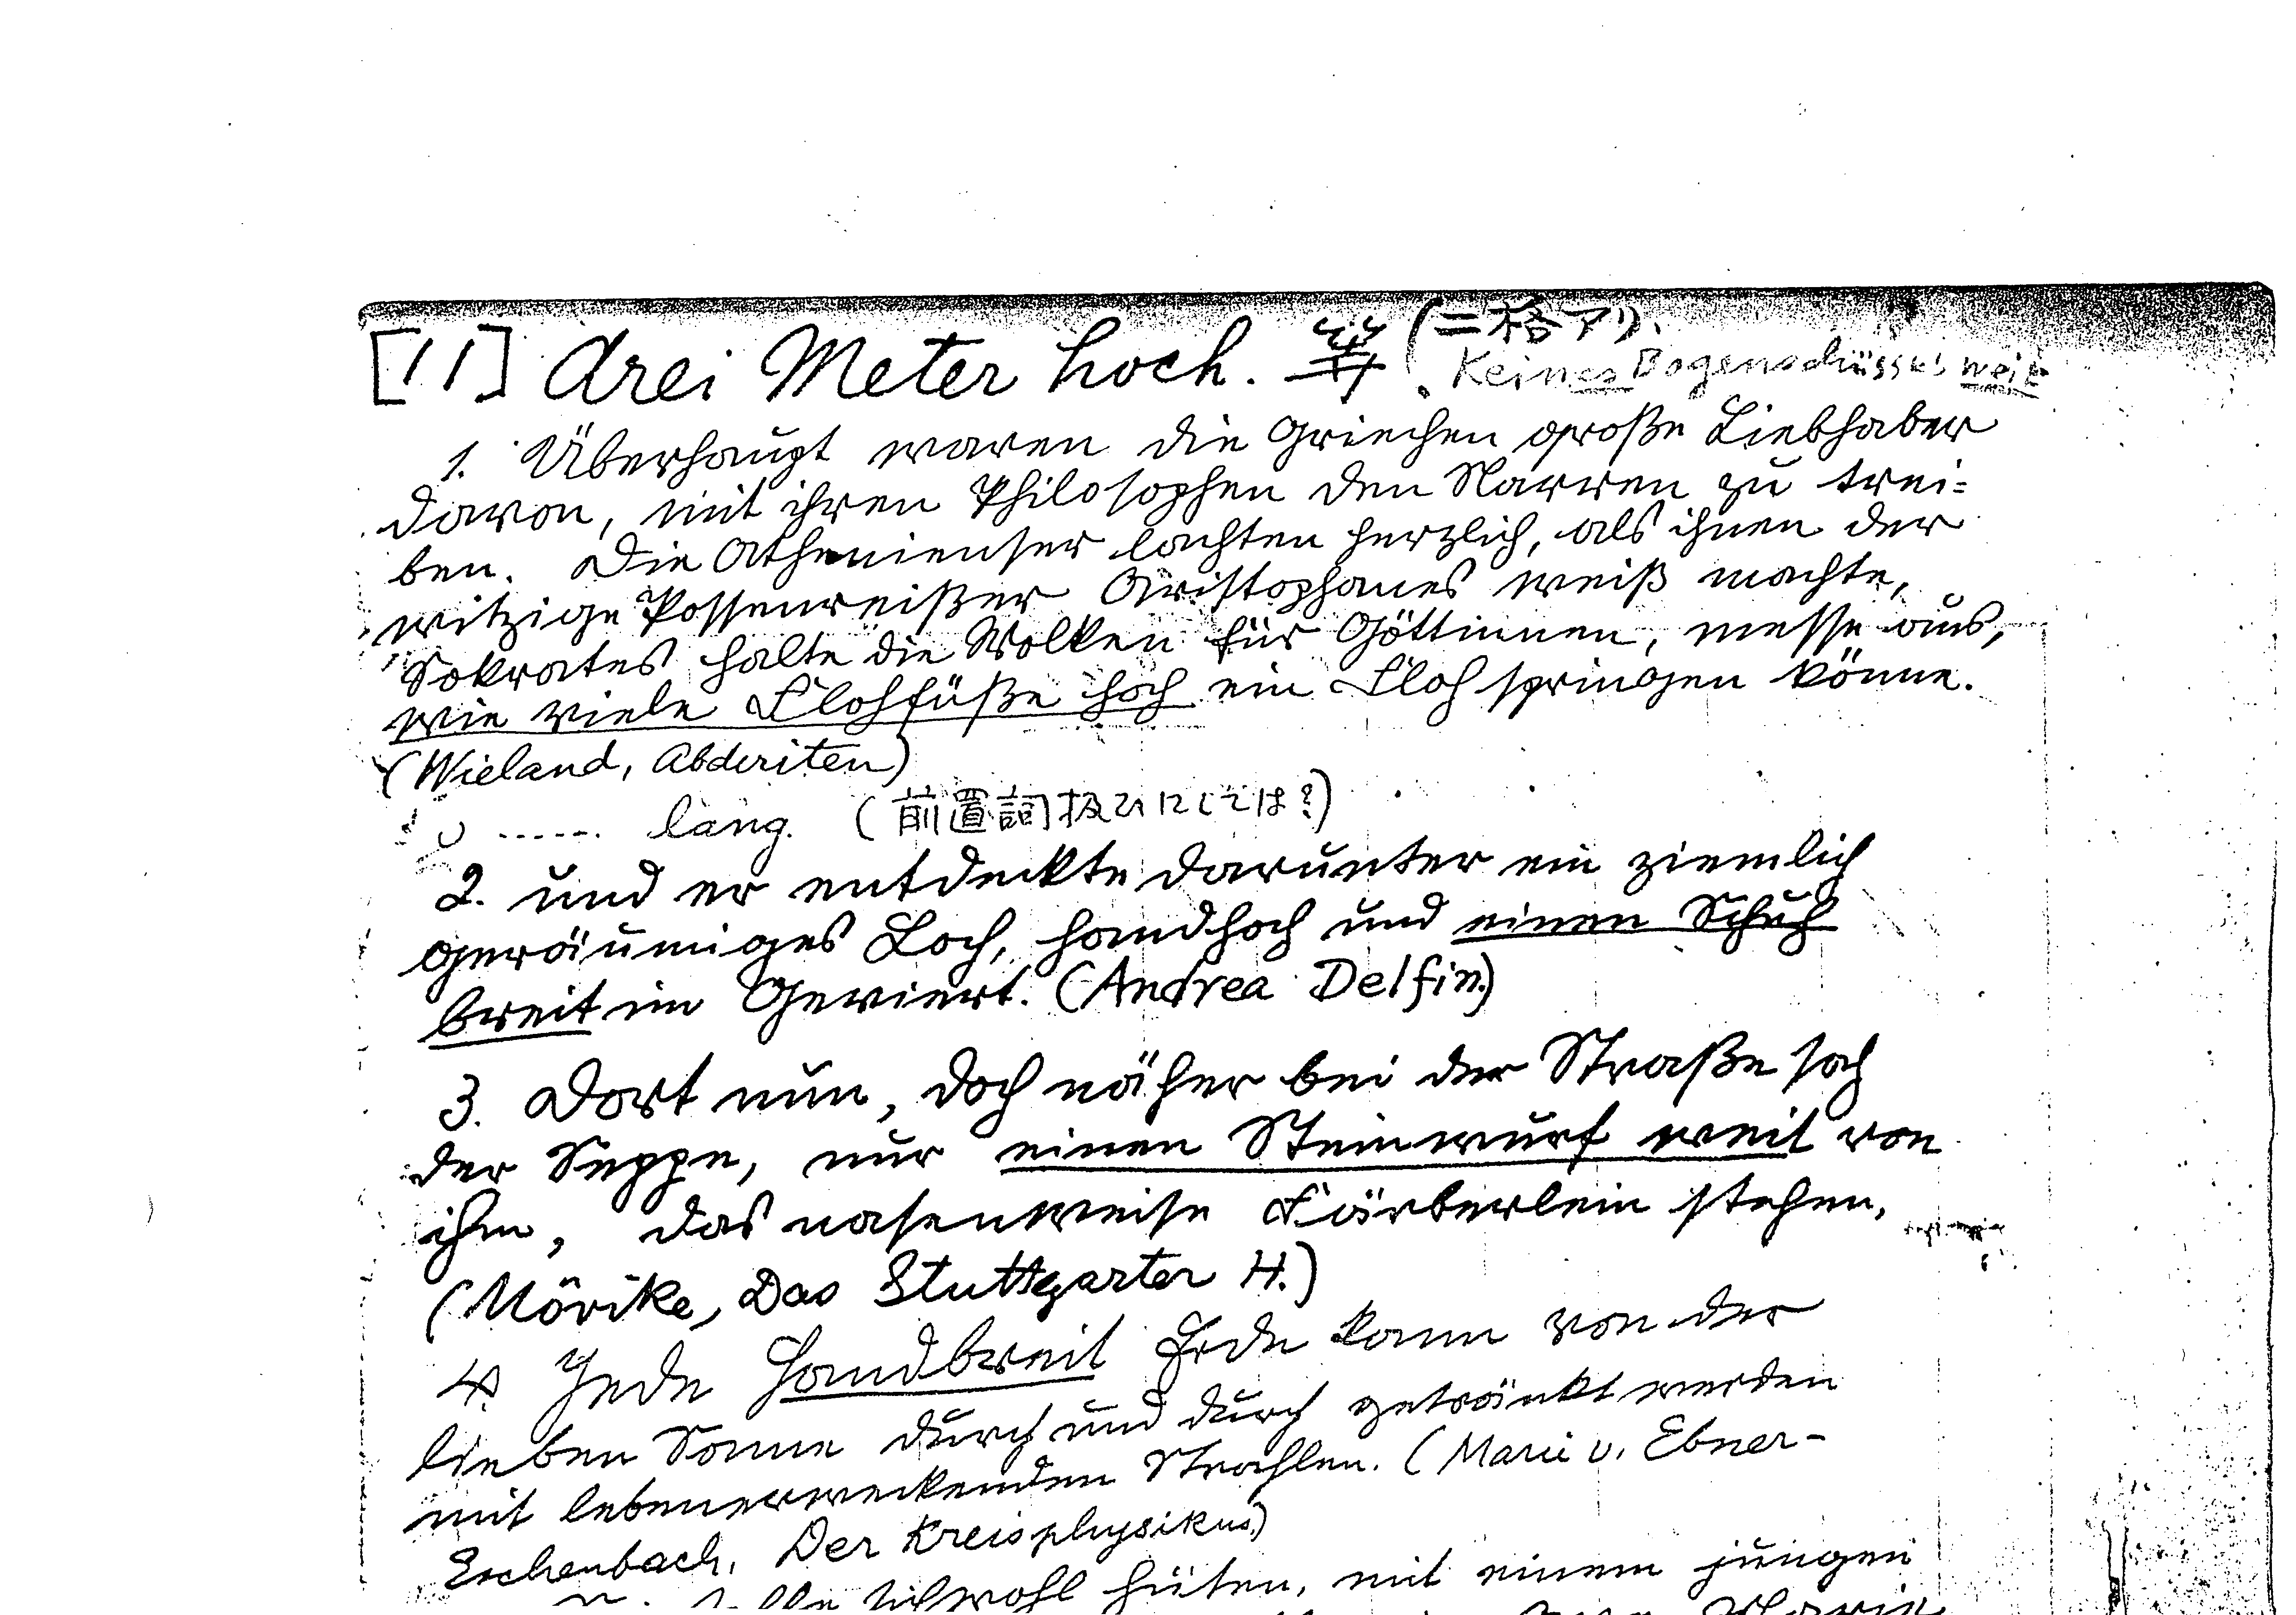 [11] drei Meter hoch. 等 (二格アリ.
Keines Bogenschusses weit
1. Überhaupt waren die Griechen große Liebhaber
davon, mit ihren Philosophen den Narren zu trei=
ben. Die Athenienser lachten herzlich, als ihnen der
witzige Possenreißer Aristophanes weiß machte,
Sokrates halte die Wolken für Göttinnen, messe aus,
wie viele Flohfüße hoch ein Floh springen könne.
(Wieland, Abderiten)
...... lang. (前置詞扱ひにしては?)
2. und er entdeckte darunter ein ziemlich
geräumiges Loch, handhoch und einen Schuh
breit im Geviert. (Andrea Delfin.)
3. Dort nun, doch näher bei der Straße sah
der Seppe, nur einen Steinwurf weit von
ihm, das nasenweise Färberlein stehen.
(Mörike, Das Stuttgarter H.)
4. Jede Handbreit Erde kann von der
lieben Sonne durch und durch getränkt werden
mit lebenerweckenden Strahlen. (Marie v. Ebner-
Eschenbach, Der Kreisphysikus)
sich wohl hüten, mit einem jungen